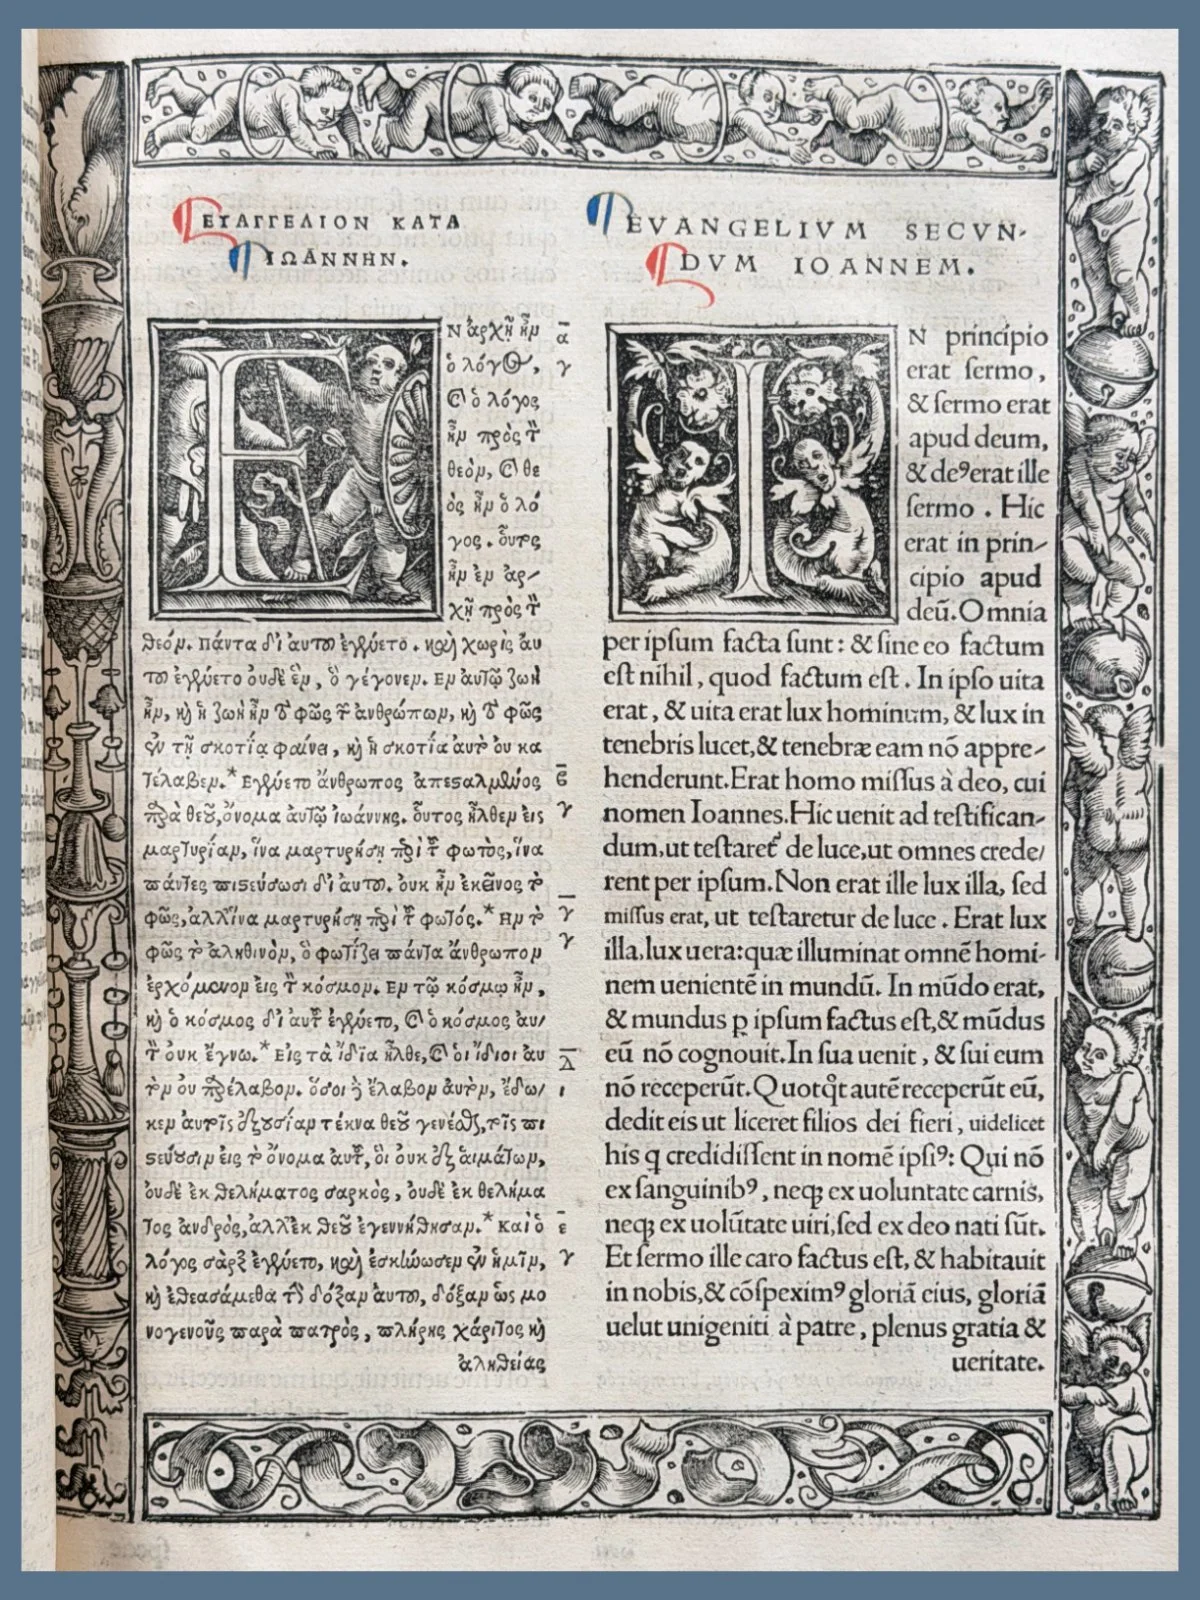 ΕΥΑΓΓΕΛΙΟΝ ΚΑΤΑ
ΙΩΑΝΝΗΝ.
ΕΝ ἀρχῇ ἦν
ὁ λόγος,
καὶ ὁ λόγος
ἦν πρὸς τὸν
θεὸν, καὶ θε
ὸς ἦν ὁ λό
γος. οὗτος
ἦν ἐν ἀρ-
χῇ πρὸς τὸν
θεόν. πάντα δι' αὐτοῦ ἐγένετο. καὶ χωρὶς αυ
τοῦ ἐγένετο οὐδὲ ἓν, ὃ γέγονεν. Εν αὐτῷ ζωὴ
ἦν, καὶ ἡ ζωὴ ἦν τὸ φῶς τῶν ἀνθρώπων, καὶ τὸ φῶς
ἐν τῇ σκοτίᾳ φαίνει, καὶ ἡ σκοτία αὐτὸ ου κα
τέλαβεν.* Εγένετο ἄνθρωπος ἀπεσταλμένος
παρὰ θεοῦ, ὄνομα αὐτῷ ἰωάννης. οὗτος ἦλθεν εἰς
μαρτυρίαν, ἵνα μαρτυρήσῃ περὶ τοῦ φωτὸς, ἵνα
πάντες πιστεύσωσι δι' αὐτοῦ. ουκ ἦν ἐκεῖνος τὸ
φῶς, ἀλλ' ἵνα μαρτυρήσῃ περὶ τοῦ φωτός.* Ην τὸ
φῶς τὸ ἀληθινὸν, ὃ φωτίζει πάντα ἄνθρωπον
ἐρχόμενον εἰς τὸν κόσμον. Εν τῷ κόσμῳ ἦν,
καὶ ὁ κόσμος δι' αὐτοῦ ἐγένετο, καὶ ὁ κόσμος αυ/
τὸν ουκ ἔγνω.* Εις τὰ ἴδια ἦλθε, καὶ οἱ ἴδιοι αυ
τὸν ου παρέλαβον. ὅσοι δὲ ἔλαβον αὐτὸν, ἔδω/
κεν αὐτοῖς ἐξουσίαν τέκνα θεοῦ γενέσθαι, τοῖς πι
στεύουσιν εἰς τὸ ὄνομα αὐτοῦ, οἳ ουκ ἐξ αἱμάτων,
οὐδὲ ἐκ θελήματος σαρκὸς, οὐδὲ ἐκ θελήμα
τος ἀνδρὸς, ἀλλ' ἐκ θεοῦ ἐγεννήθησαν.* Καὶ ὁ
λόγος σὰρξ ἐγένετο, καὶ ἐσκήνωσεν ἐν ἡμῖν,
καὶ ἐθεασάμεθα τὴν δόξαν αὐτοῦ, δόξαν ὡς μο
νογενοῦς παρὰ πατρὸς, πλήρης χάριτος καὶ
ἀληθείας
α
γ
β
γ
γ
γ
Δ
ι
ε
γ
EVANGELIVM SECVN-
DVM IOANNEM.
IN principio
erat sermo,
& sermo erat
apud deum,
& deꝰ erat ille
sermo. Hic
erat in prin-
cipio apud
deũ. Omnia
per ipsum facta sunt: & sine eo factum
est nihil, quod factum est. In ipso uita
erat, & uita erat lux hominum, & lux in
tenebris lucet, & tenebræ eam nõ appre-
henderunt. Erat homo missus à deo, cui
nomen Ioannes. Hic uenit ad testifican-
dum, ut testaret᷑ de luce, ut omnes crede/
rent per ipsum. Non erat ille lux illa, sed
missus erat, ut testaretur de luce. Erat lux
illa, lux uera: quæ illuminat omnẽ homi-
nem uenientẽ in mundũ. In mũdo erat,
& mundus ꝑ ipsum factus est, & mũdus
eũ nõ cognouit. In sua uenit, & sui eum
nõ receperũt. Quotꝗt autẽ receperũt eũ,
dedit eis ut liceret filios dei fieri, uidelicet
his q credidissent in nomẽ ipsiꝰ: Qui nõ
ex sanguinibꝰ, neqꝫ ex uoluntate carnis,
neqꝫ ex uolũtate uiri, sed ex deo nati sũt.
Et sermo ille caro factus est, & habitauit
in nobis, & cõspeximꝰ gloriã eius, gloriã
uelut unigeniti à patre, plenus gratia &
ueritate.